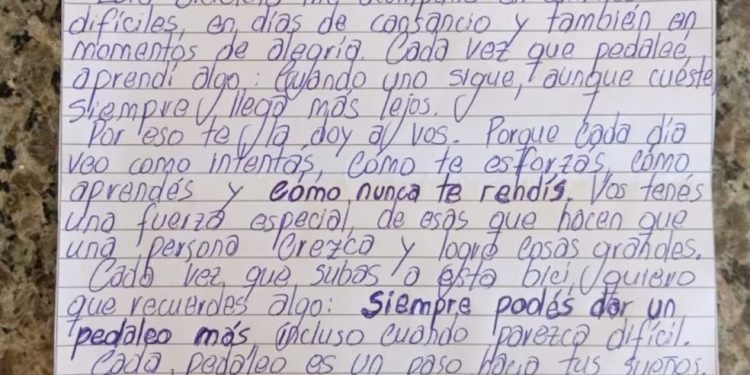 Esta bicicleta me acompañó en caminos
difíciles, en días de cansancio y también en
momentos de alegría. Cada vez que pedaleé,
aprendí algo: Cuando uno sigue, aunque cueste,
siempre llega más lejos.
Por eso te la doy a vos. Porque cada día
veo como intentás, cómo te esforzás, cómo
aprendés y cómo nunca te rendís. Vos tenés
una fuerza especial, de esas que hacen que
una persona crezca y logre cosas grandes.
Cada vez que subas a esta bici, quiero
que recuerdes algo: Siempre podés dar un
pedaleo más, incluso cuando parezca difícil.
Cada pedaleo es un paso hacia tus sueños.